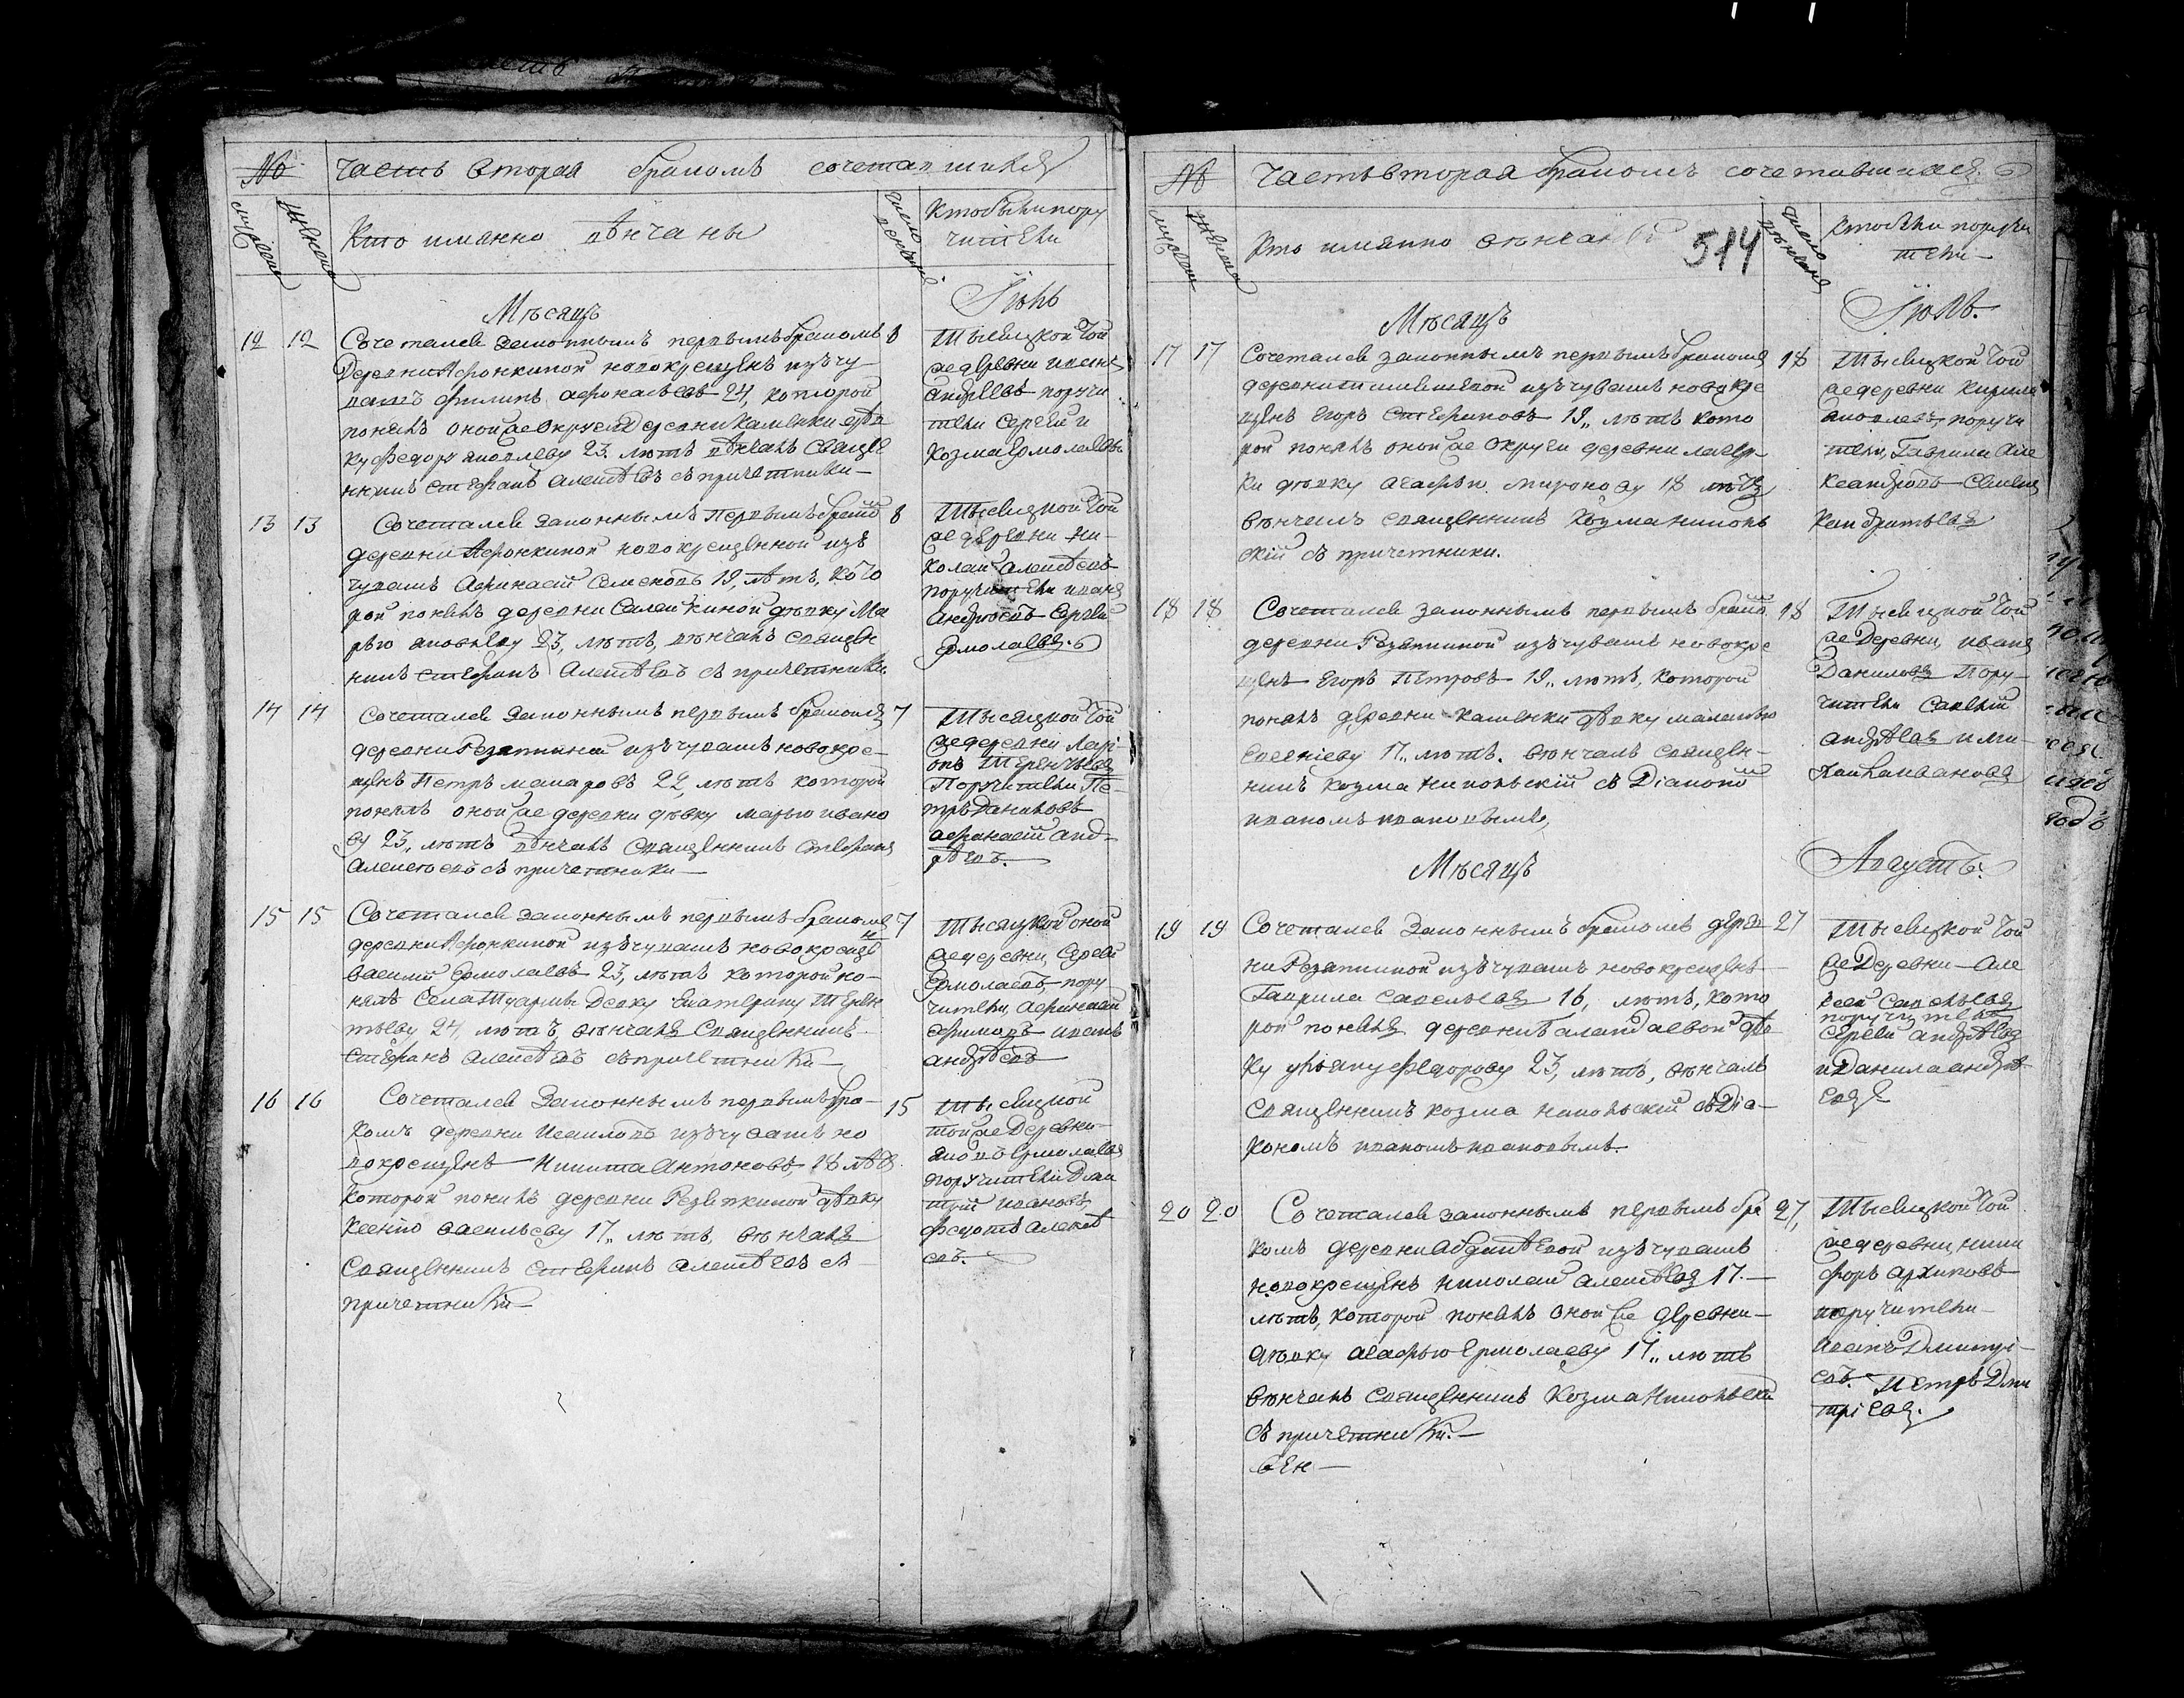 № Часть вторая бракомъ сочетавшихся
мужеска женска Кто имянно вѣнчаны число вѣнчанiй Кто были пору
чители
Мѣсяцъ Iюнь
12 12 Сочетался законнымъ первымъ бракомъ 8
Деревни Афонкиной новокрещенъ изъ чу
вашъ Филипъ Афонасьевъ 24, которой
понялъ оной же округи Деревни Каменки дѣв
ку Федору яковлеву 23, лѣтъ вѣнчалъ Свяще
нникъ Стефанъ Алексѣевъ съ причетники
Тысяцкой той
же деревни иванъ
андреевъ поручи
тели Сергей и
Козма Ермолаевы
13 13 Сочетался законнымъ Первымъ бракомъ 8
деревни Афонкиной новокрещенной изъ
чувашъ Афанасий Семеновъ 19, лѣтъ, кото
рой понялъ деревни Савейкиной дѣвку Ма
рью яковлеву 23, лѣтъ, вѣнчалъ священ
никъ Стефанъ Алексѣевъ съ причетники
Тысяцкой той
же деревни ни
колай Алексѣевъ
поручители иванъ
андреевъ Сергей
Ермолаевъ
14 14 Сочетался законнымъ первымъ бракомъ 7
деревни Резяпкиной изъ чувашъ новокре
щенъ Петръ макаровъ 22, лѣтъ которой
понялъ оной же деревни дѣвку марью ивано
ву 23, лѣтъ вѣнчалъ Священникъ Стефанъ
Алексѣевъ съ причетники
Тысяцкой той
же деревни Лари
онъ Терентьевъ
Поручители Пе
тръ Даниловъ
афанасий анд
рѣевъ.
15 15 Сочетался законнымъ первымъ бракомъ 7
деревни Афонкиной изъ чувашъ новокрещен
василий Ермолаевъ 23, лѣтъ которой по
нялъ Села Туармы Девку Екатерину Терен
тьеву 24, лѣтъ, вѣнчалъ Священникъ
Стефанъ Алексѣевъ съ причетники
Тысяцкой оной
же деревни, Сергей
Ермолаевъ, пору
чители, Афанасий
ефимовъ иванъ
андрѣевъ
16 16 Сочетался Законнымъ первымъ бра 15
комъ деревни Исакловъ изъ чувашъ но
вокрещенъ Никита Антоновъ, 18 лѣтъ
которой понялъ деревни Резяпкиной дѣвку
Ксенiю васильеву 17, лѣтъ, вѣнчалъ
Священникъ Стефанъ алексѣевъ съ
причетники
Тысяцкой
той же Деревни
яковъ Ермолаевъ
поручители Дми
трий ивановъ,
Федотъ алексѣ
евъ.
№ Часть вторая бракомъ сочетавшихся.
мужеска женска Кто имянно вѣнчаны 514 число вѣнчанiя Кто были поручи
тели
Мѣсяцъ Iюль.
17 17 Сочетался законнымъ первымъ бракомъ 18
деревни изъ чувашъ новокре
щенъ Егоръ Стефановъ 19, лѣтъ кото
рой понялъ оной же Округи деревни
ки дѣвку агафью миронову 18 лѣтъ
вѣнчалъ священникъ Козма никол
скiй съ причетники.
Тысяцкой той
же деревни кирила
яковлевъ, поручи
тели, Гаврила Але
ксандровъ
Кандратьевъ
18 18 Сочетался законнымъ первымъ браком 18
деревни Резяпкиной изъ чувашъ новокре
щенъ Егоръ Петровъ 19, лѣтъ, которой
понялъ деревни Каменки дѣвку
17, лѣтъ. вѣнчалъ священ
никъ Козма Никольскiй съ Дiакон
иваномъ ивановымъ,
Тысяцкой той
же Деревни, иванъ
Даниловъ Пору
чители Савелий
андрѣевъ и ми
хайла ивановъ
Мѣсяцъ Августъ.
19 19 Сочетался законнымъ бракомъ дерев 27
ни Резяпкиной изъ чувашъ новокрещенъ
Гаврила савельевъ 16, лѣтъ, кото
рой понялъ деревни дѣв
ку ульяну Федорову 23, лѣтъ, вѣнчалъ
Священникъ козма никольскiй съ Дiа
кономъ иваномъ ивановымъ.
Тысяцкой той
же Деревни Але
ксей Савельевъ
поручители
Сергей андрѣевъ
и Данила андрѣ
евъ
20 20 Сочетался законнымъ первымъ бра 27,
комъ деревни Абдикѣевой изъ чувашъ
новокрещенъ николай алексѣевъ 17.
лѣтъ, которой понялъ оной же деревни
дѣвку агафью Ермолаеву 17, лѣтъ
вѣнчалъ священникъ Козма Никольскiй
съ причетники.
Тысяцкой той
же деревни, ники
форъ архиповъ
поручители
иванъ Дмитрi
евъ. Петръ Дми
трiевъ.
Сен